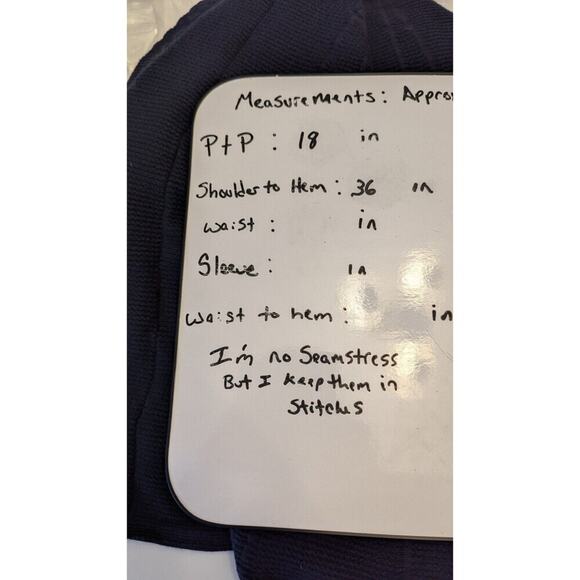 Measurements: Appro
PtP : 18 in
Shoulder to Hem : 36 in
Waist : in
Sleeve : in
Waist to hem : in
I'm no Seamstress
But I keep them in
Stitches